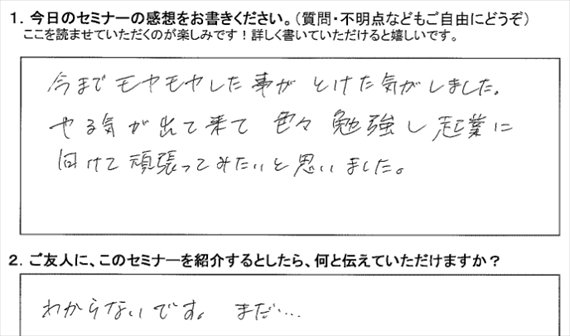 1. 今日のセミナーの感想をお書きください。(質問・不明点などもご自由にどうぞ)
ここを読ませていただくのが楽しみです!詳しく書いていただけると嬉しいです。
今までモヤモヤした事が とけた気がしました。
やる気が出て来て 色々 勉強し 起業に
向けて頑張ってみたいと思いました。
2. ご友人に、このセミナーを紹介するとしたら、何と伝えていただけますか?
わからないです。 まだ…